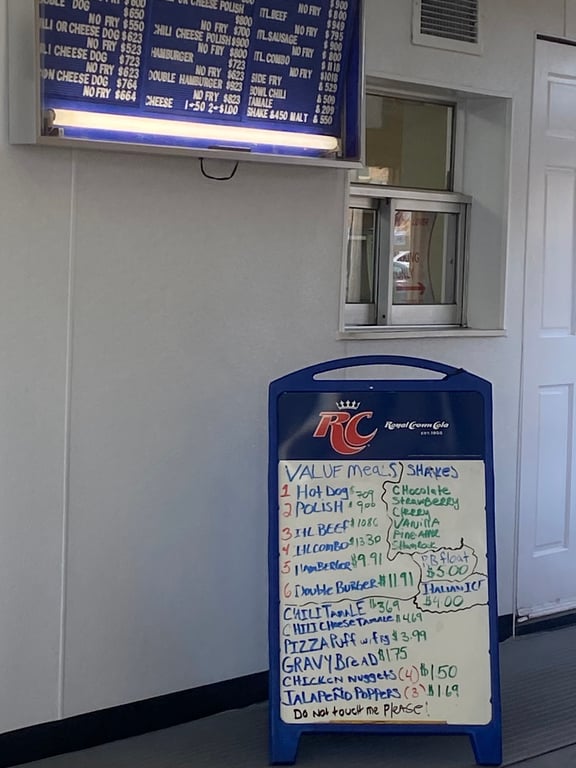 OUBLE DOG $800
NO FRY $650
$550
LI OR CHEESE DOG $623
NO FRY $523
LI CHEESE DOG $723
NO FRY $623
ON CHEESE DOG $764
NO FRY $664
OR CHEESE POLISH
NO FRY $800
CHILI CHEESE POLISH $900
NO FRY $800
HAMBURGER $723
NO FRY $623
DOUBLE HAMBURGER $923
NO FRY $823
CHEESE 1-50 2-$1.00
NO FRY
ITL.BEEF
NO FRY
ITL.SAUSAGE
NO FRY
ITL.COMBO
NO FRY $1018
SIDE FRY $529
BOWL CHILI $509
TAMALE $209
SHAKE $450 MALT $550
RC Royal Crown Cola
EST. 1905
VALUE MEALS
1 HOT DOG $709
2 POLISH $900
3 ITL BEEF $1086
4 ITL COMBO $1330
5 HAMBERGER $9.91
6 DOUBLE BURGER $11.91
SHAKES
CHOCOLATE
STRAWBERRY
CHERRY
VANILLA
PINEAPPLE
SHAMROCK
RB FLOAT
$5.00
ITALIAN ICE
$4.00
CHILI TAMALE $369
CHILI CHEESE TAMALE $469
PIZZA PUFF w/ FRY $3.99
GRAVY BREAD $1.75
CHICKEN NUGGETS (4) $1.50
JALAPEÑO POPPERS (3) $1.69
DO NOT TOUCH ME PLEASE!